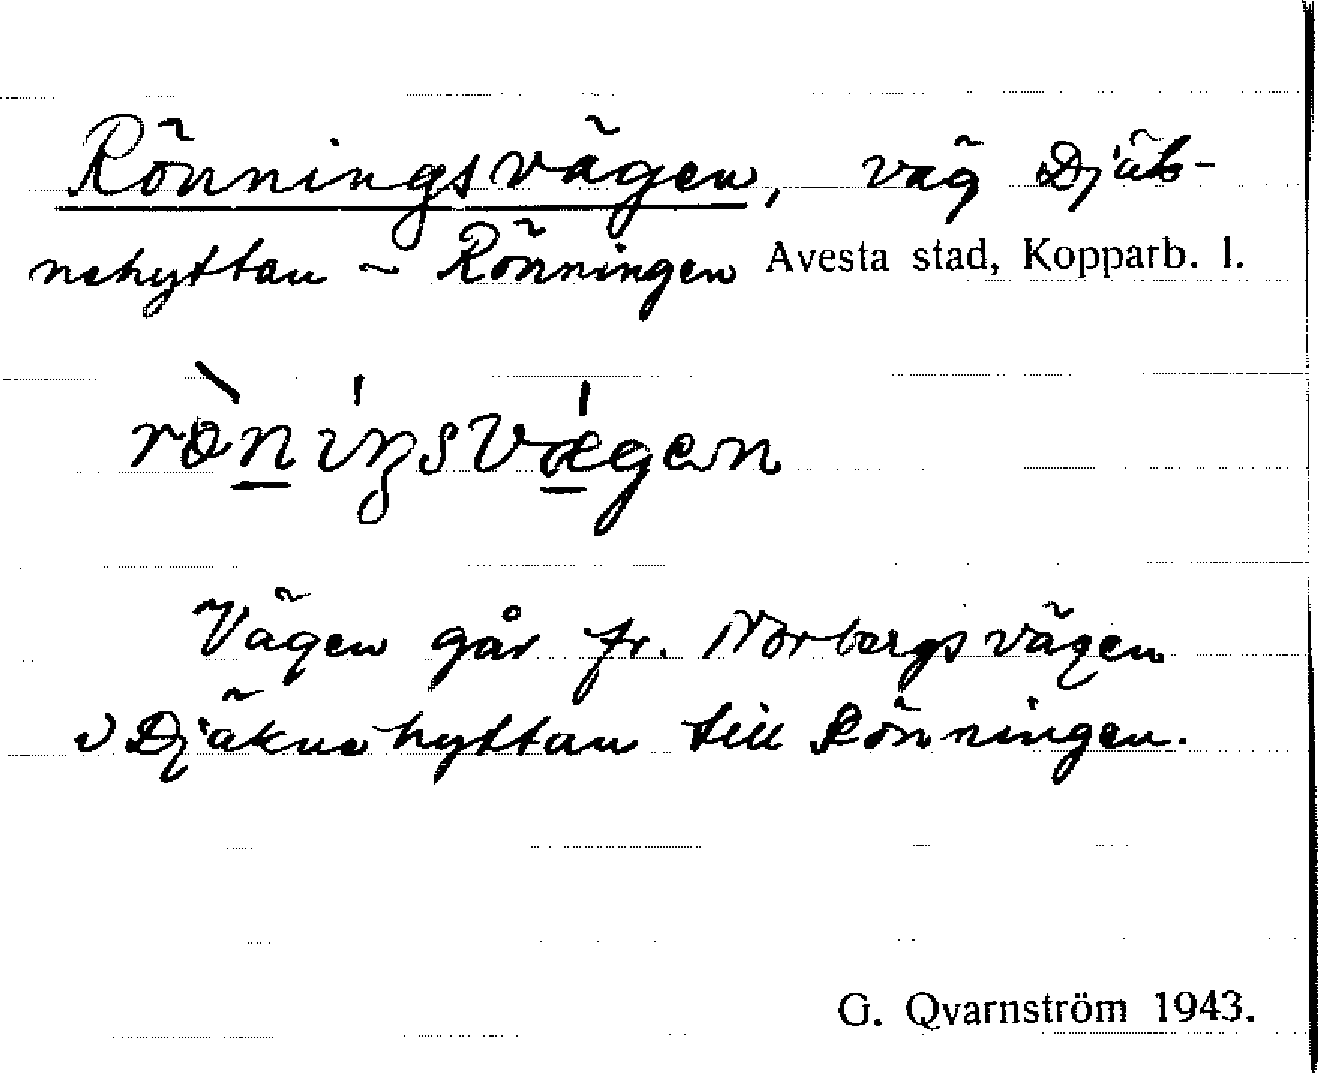 Rönningsvägen, väg Djäk-
nehyttan – Rönningen Avesta stad, Kopparb. l.
Vägen går fr. Norbergsvägen
v Djäknehyttan till Rönningen.
G. Qvarnström 1943.